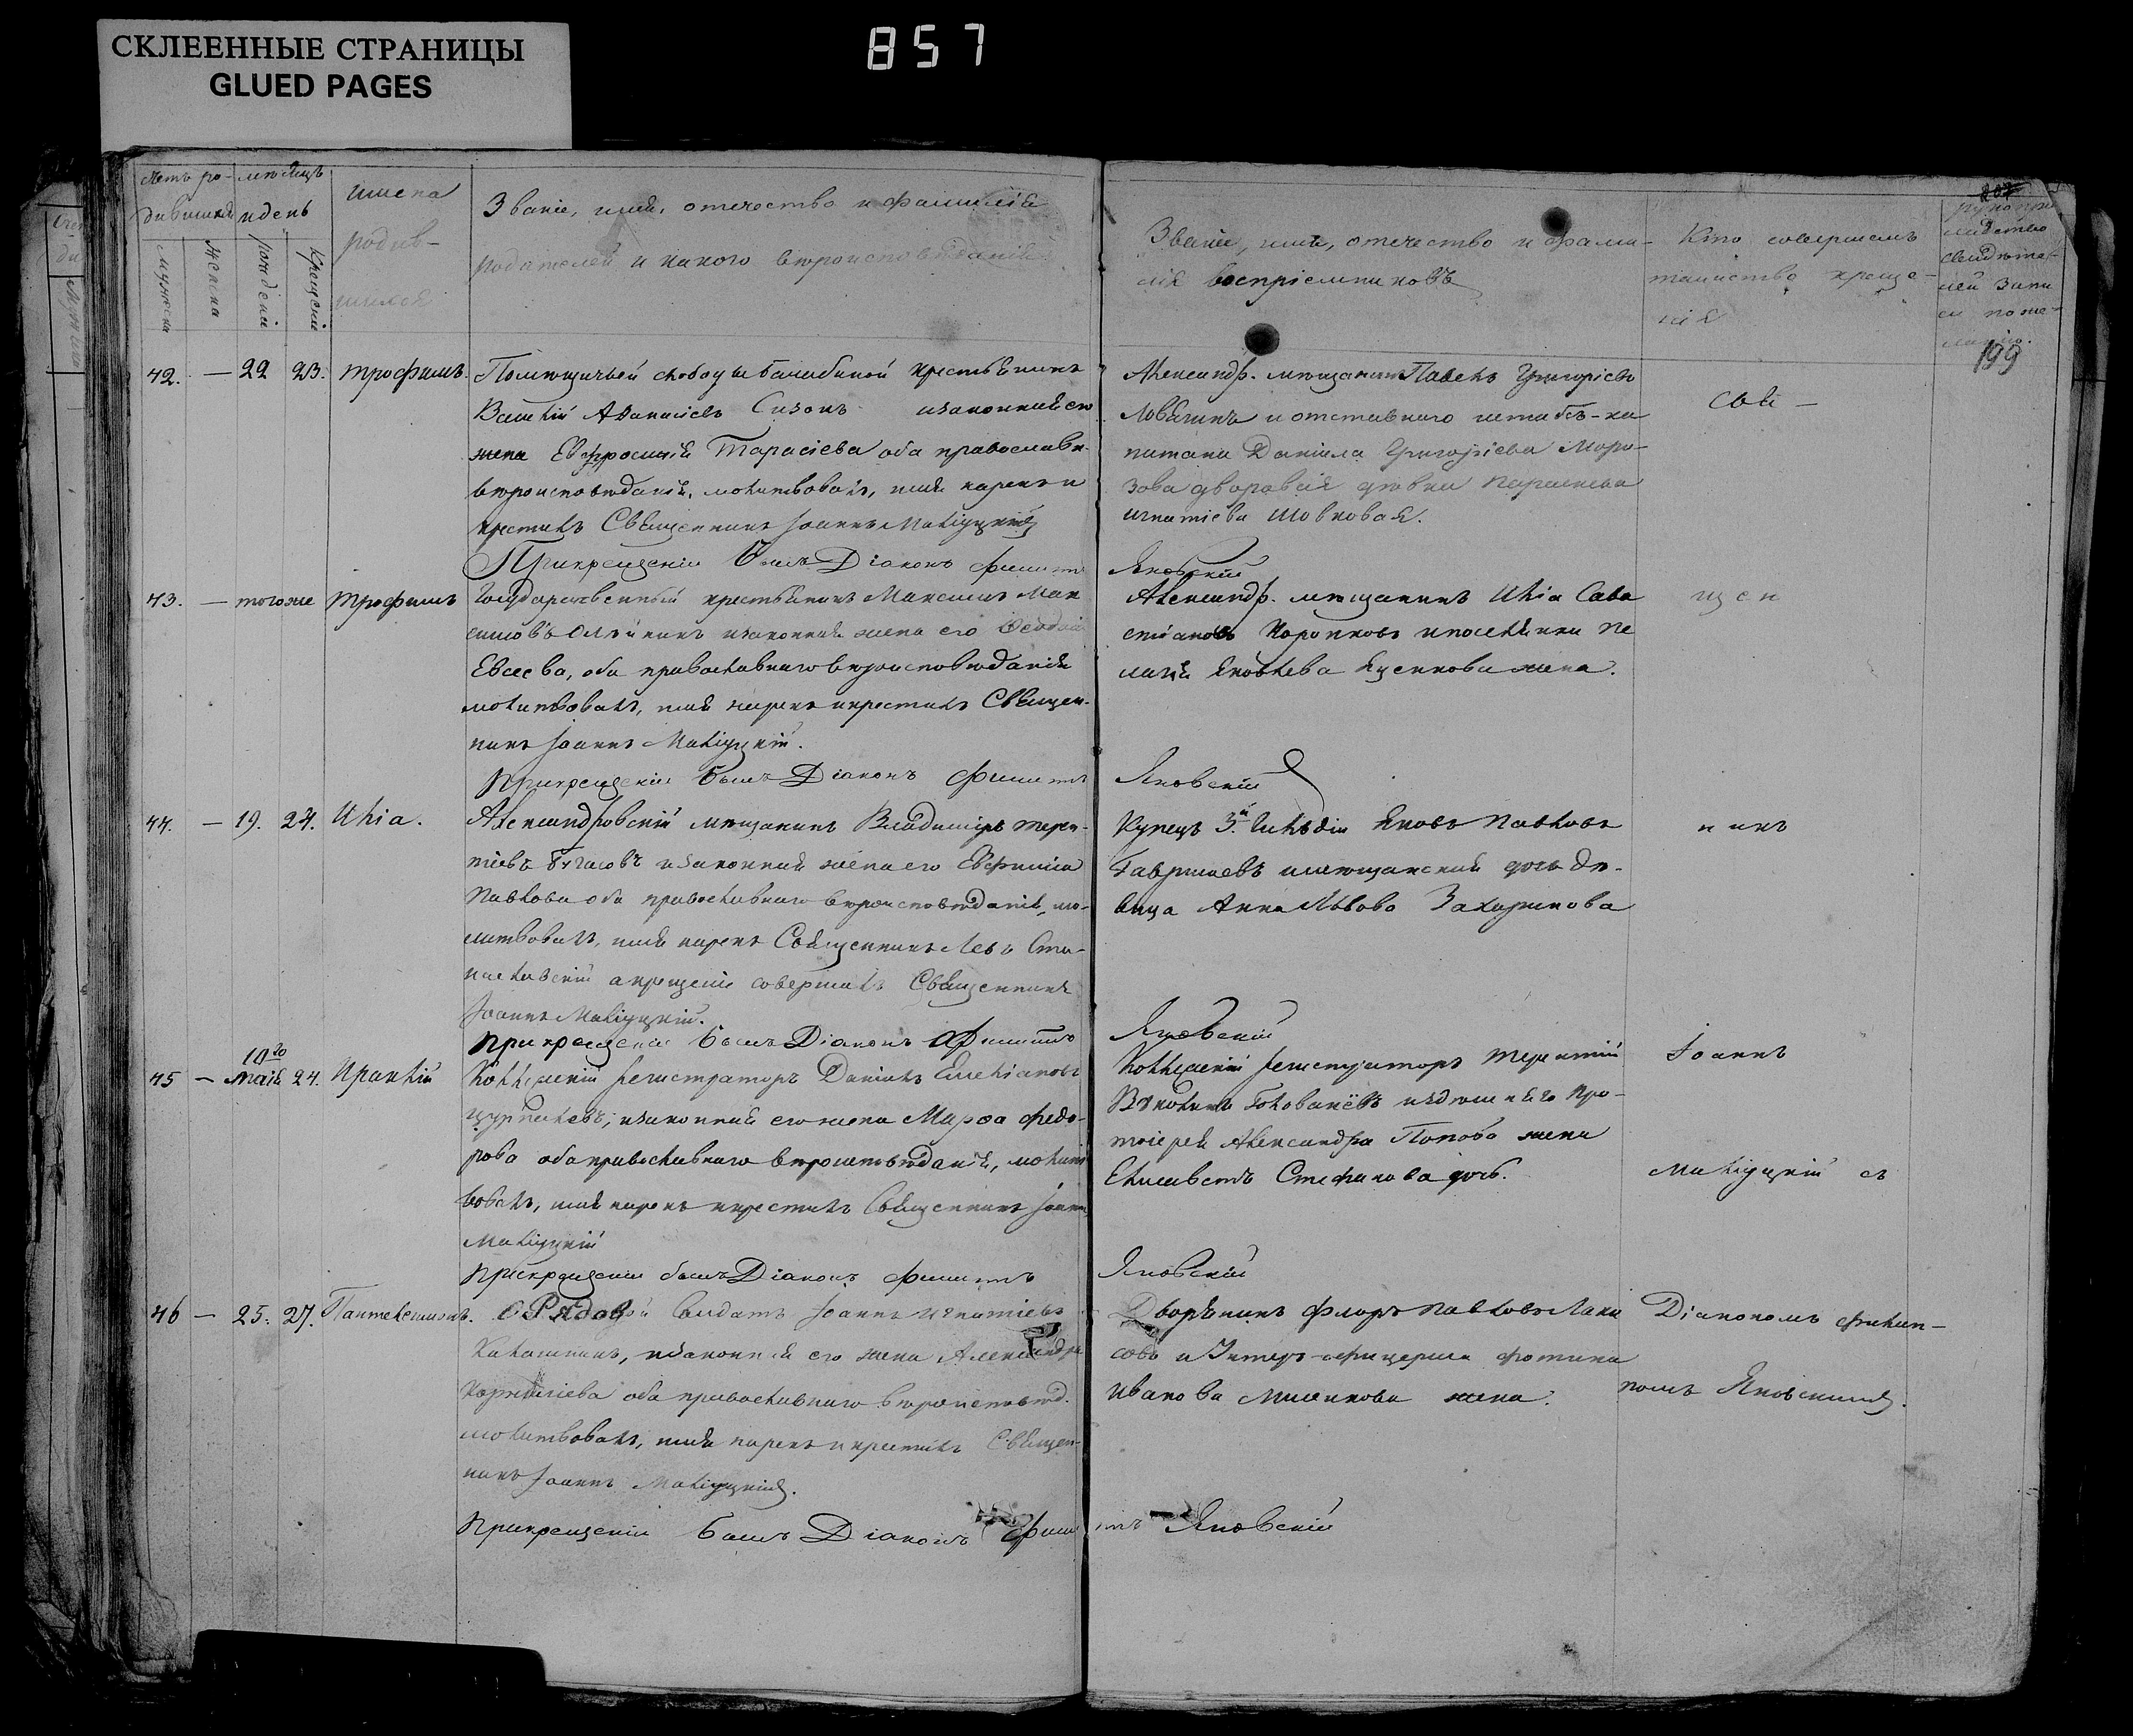 СКЛЕЕННЫЕ СТРАНИЦЫ
GLUED PAGES
857
Летъ ро-
дившихся
мѣсяцъ
и день
имена
родив-
шихся
мужеска
женска
рожденія
крещенія
Званіе, имя, отечество и фамилія
родителей и какого вѣроисповѣданія
Званіе, имя, отечество и фами-
лія воспріемниковъ
Кто совершалъ
таинство креще-
нія
207
рукопри
кладство
свидѣте-
лей запи
си по же-
ланію.
199
42. — 22 23. Трофимъ.
Помѣщичьей слободы Балабиной крестьянинъ
Василій Аѳанасіевъ Сизонъ и законная его
жена Евфросинія Тарасіева оба православн.
вѣроисповѣданія, молитвовалъ, имя нарекъ и
крестилъ Священникъ Іоаннъ Малицкій
При крещеніи былъ Діаконъ Филиппъ Яновскій
Александр. мѣщанинъ Павелъ Григоріевъ
Ловягинъ и отставного штабсъ-ка
питана Даніила Григоріева Моро-
зова дворовая дѣвка Параскева
Игнатіева Шовковая.
Свя-
43. — того же Трофимъ
Государственный крестьянинъ Максимъ Мак
симовъ Олѣйникъ и законная жена его Ѳеодосія
Евсеева, оба православнаго вѣроисповѣданія
молитвовалъ, имя нарекъ и крестилъ Священ-
никъ Іоаннъ Малицкій.
При крещеніи былъ Діаконъ Филиппъ Яновскій
Александр. мѣщанинъ Илія Сава
стіановъ Коропковъ и поселянки Пе
лагія Яковлева Яценкова жена.
щен
44. — 19. 24. Илія.
Александровскій мѣщанинъ Владиміръ Терен-
тіевъ и законная жена его Евфимія
Павлова оба православнаго вѣроисповѣданія, мо-
литвовалъ, имя нарекъ Священникъ Левъ Ста-
ниславскій а крещеніе совершилъ Священникъ
Іоаннъ Малицкій.
При крещеніи былъ Діаконъ Филиппъ Яновскій
Купецъ 3.й гильдіи Яковъ Павловъ
Гавришевъ и мѣщанская дочь дѣ-
вица Анна Львова Захаринова
никъ
45 — 10го Маія 24. Ираклій
Коллежскій регистраторъ Даніилъ Емеліановъ
и законная его жена Марѳа Федо-
рова оба православнаго вѣроисповѣданія, молит
вовалъ, имя нарекъ и крестилъ Священникъ Іоаннъ
Малицкій
При крещеніи былъ Діаконъ Филиппъ Яновскій
Коллежскій регистраторъ Терентій
Голованёвъ и здѣшняго Про-
тоіерея Александра Попова жена
Елисаветъ Стефанова дочь.
Іоаннъ
Малицкій съ
46 — 25. 27. Пантелеимонъ.
Рядовой Солдатъ Іоаннъ Игнатіевъ
Калашникъ, и законная его жена Александра
Корниліева оба православнаго вѣроисповѣд.
молитвовалъ, имя нарекъ и крестилъ Священ-
никъ Іоаннъ Малицкій.
При крещеніи былъ Діаконъ Филиппъ Яновскій
Дворянинъ Флоръ Павловъ Лака
совъ и Унтеръ-офицерша Фотина
Иванова Мишкова жена.
Діакономъ Филип-
помъ Яновскимъ.